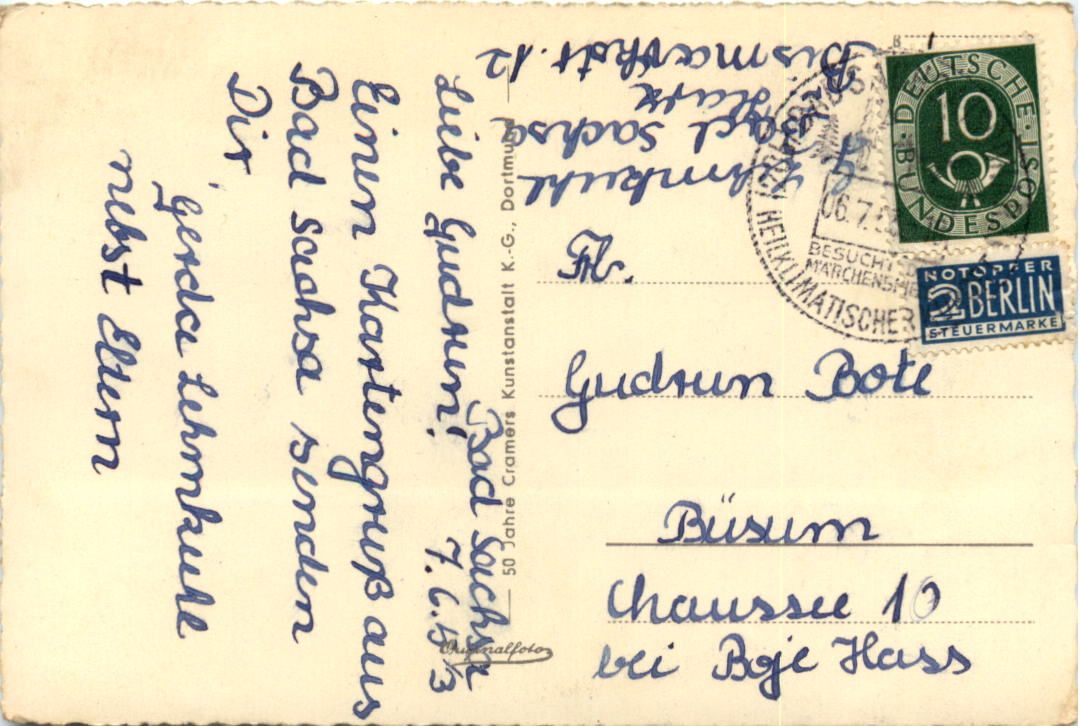 Bad Sachsa
7.6.53
Liebe Gudrun!
Einen Kartengruß aus
Bad Sachsa senden
Dir,
Gerda Lehmkuhl
nebst Eltern
50 Jahre Cramers Kunstanstalt K.-G., Dortmund
Originalfoto
Lehmkuhl
Bad Sachsa
Harz
Bismarkstr. 12
Fr.
Gudrun Bote
Büsum
Chaussee 10
bei Boje Hass
DEUTSCHE BUNDESPOST
10
NOTOPFER
2 BERLIN
STEUERMARKE
06.7.53
BESUCHT
MÄRCHEN
HEILKLIMATISCHER